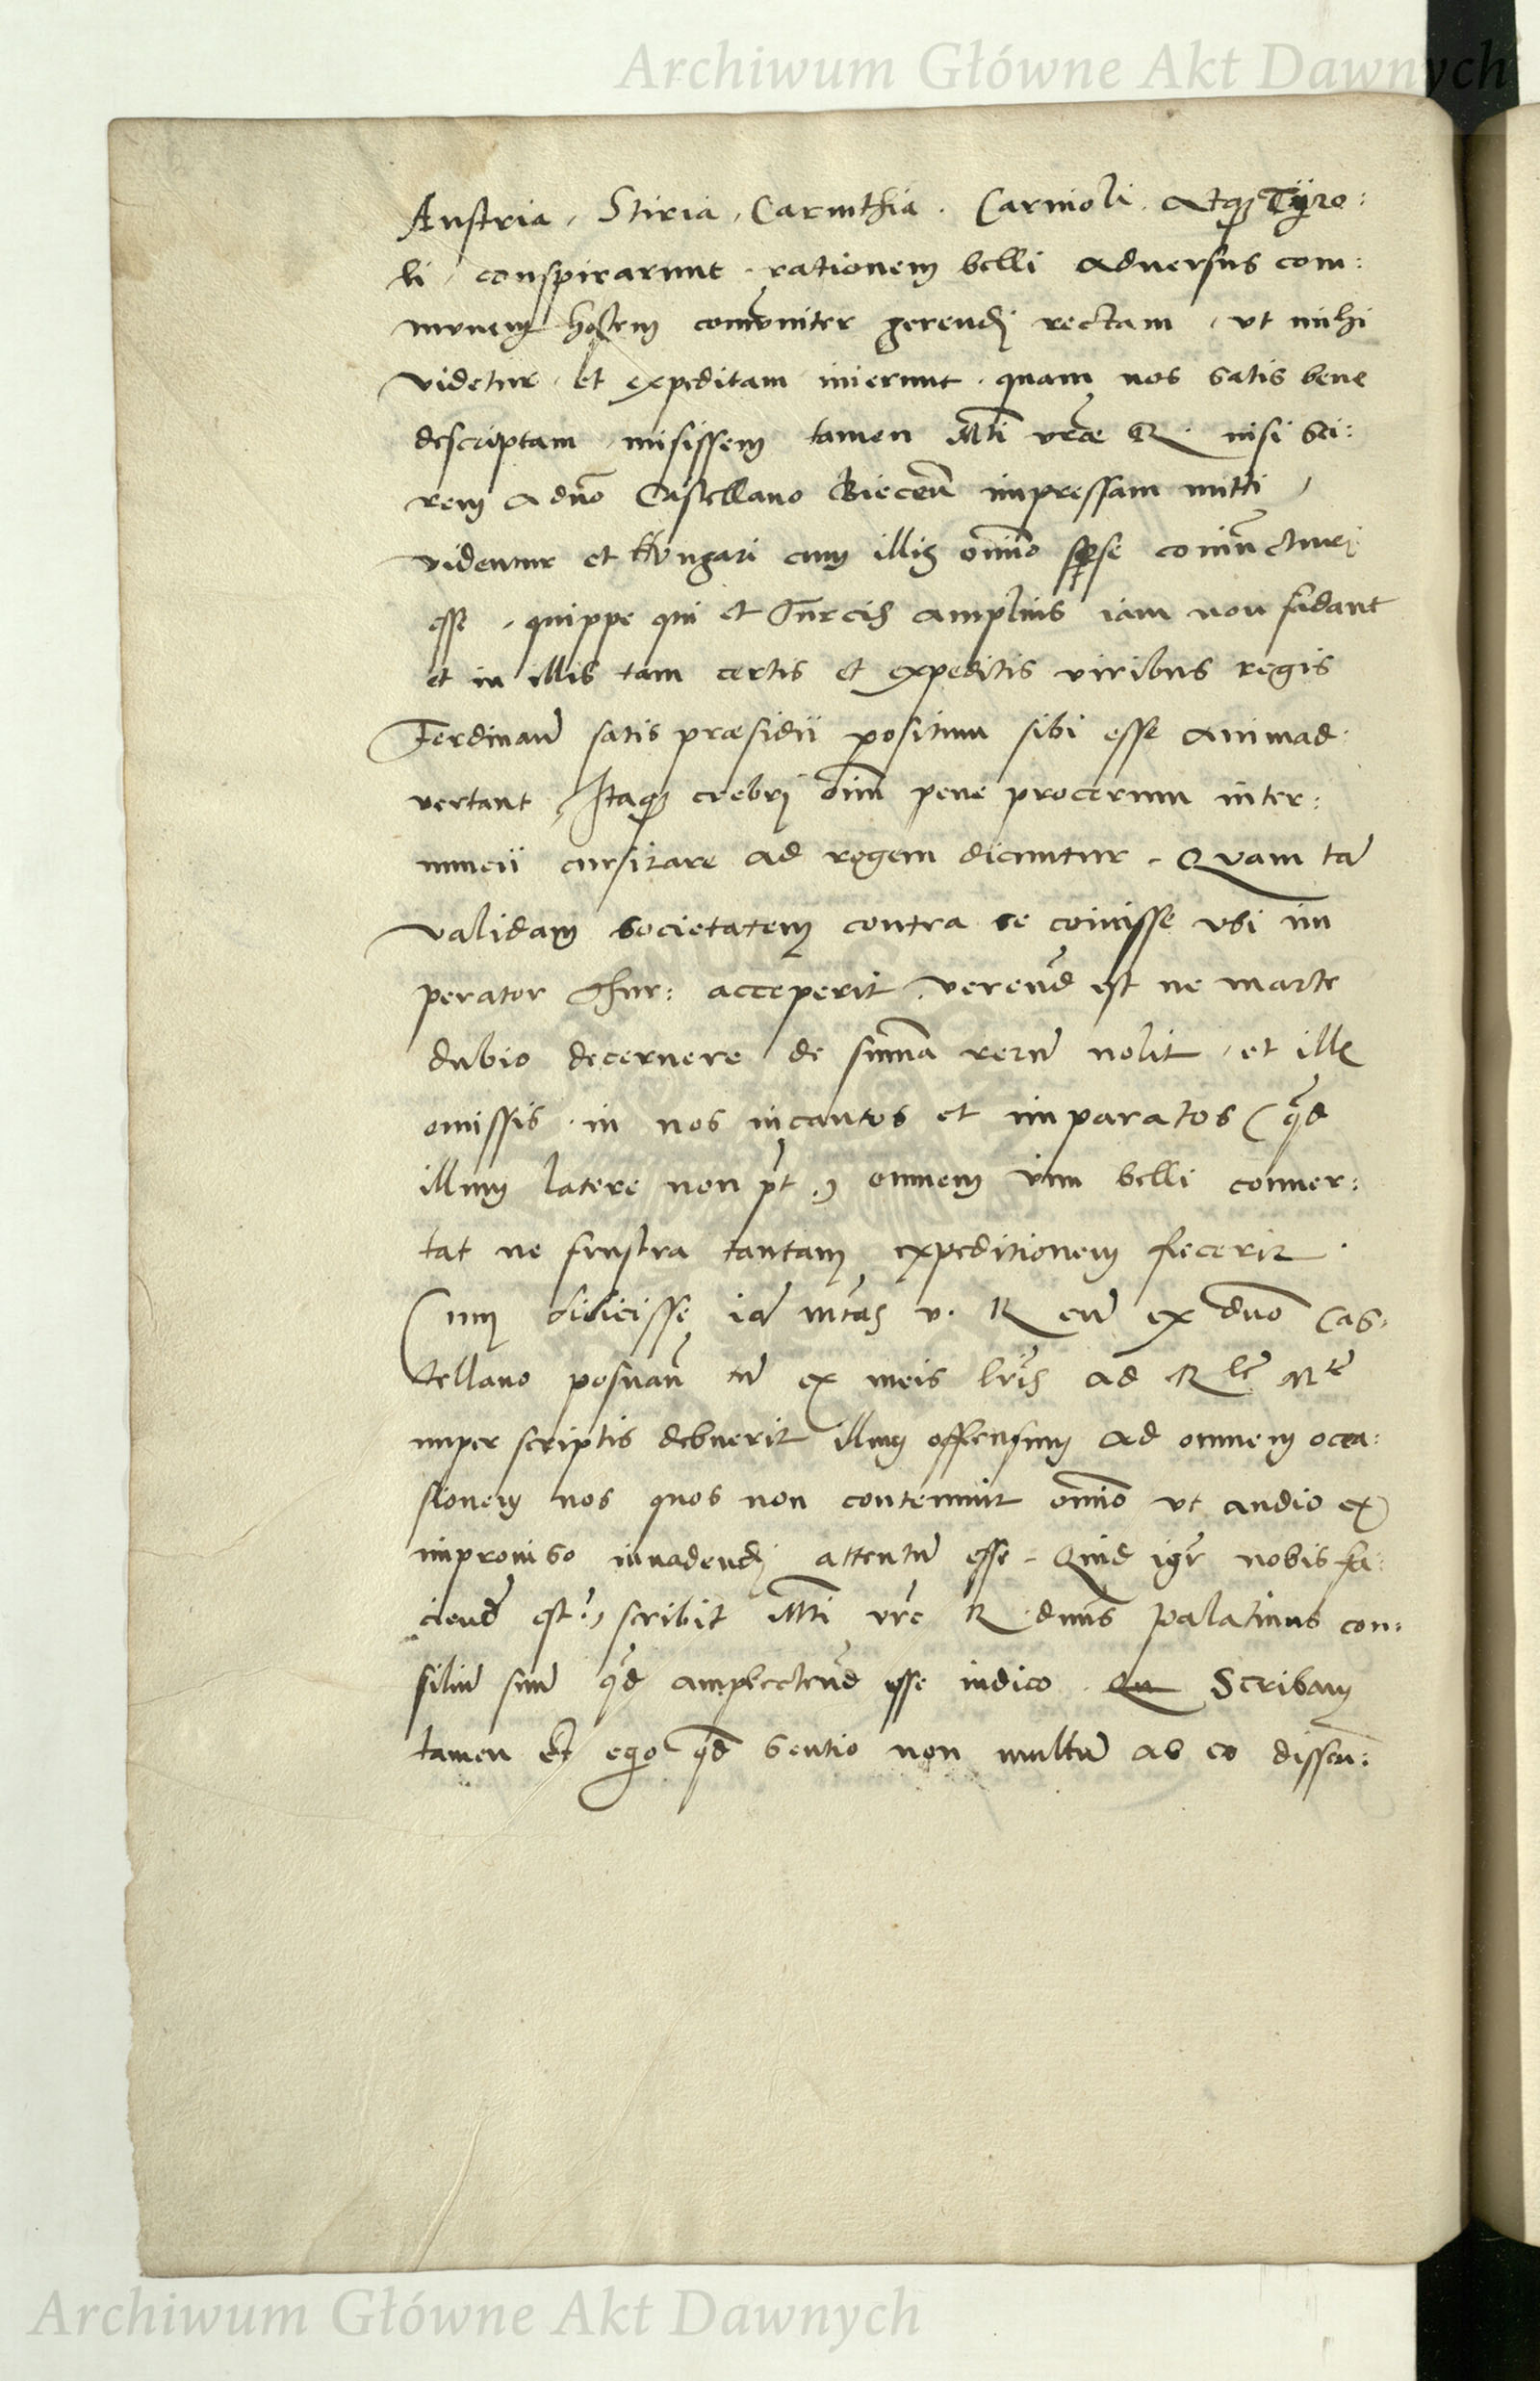 Archiwum Główne Akt Dawnych
Austria, Stiria, Carinthia. Carnioli. atq₃ Tÿro:
li, conspirarunt. rationem belli adversus com:
munem hostem comuniter gerendi rectam, ut mihi
videtur, et expeditam inierunt. quam nos satis bene
descriptam, misissem tamen Mti vrae R. nisi sci:
rem a dno Castellano Biecen̄ impressam mitti,
videntur et Hungari cum illis omnino sese coniuncturi
esse, quippe qui et Turcis amplius iam non fidant
et in illis tam certis et expeditis viribus regis
Ferdinan̄ satis praesidii positum sibi esse animad:
vertant, Itaq₃ crebri oīm pene procerum inter:
nuncii cursitare ad regem dicuntur. Quam tā
validam societatem contra se coivisse ubi im
perator Thur: acceperit, verend̄ est ne marte
dubio decernere de summa rerū nolit, et illis
omissis. in nos incautos et imparatos (qd̄
illum latere non pt̄,) omnem vim belli conver:
tat ne frustra tantam expeditionem fecerit.
Cum didicisse iā Mtas v. R cū ex dno Cas:
tellano posnan̄ tū ex meis lr̄is ad Rlē Mtē
nuper scriptis debuerit illum offensum ad omnem occa:
sionem nos quos non contemnit omnino ut audio ex
improviso invadendi attentū esse. Quid igr̄ nobis fa:
ciend̄ est?, scribit Mti vrē R. dnus Palatinus con:
siliū suū qd̄ amplectend̄ esse iudico. Qu Scribam
tamen et ego qd̄ sentio non multū ab eo dissen:
Archiwum Główne Akt Dawnych